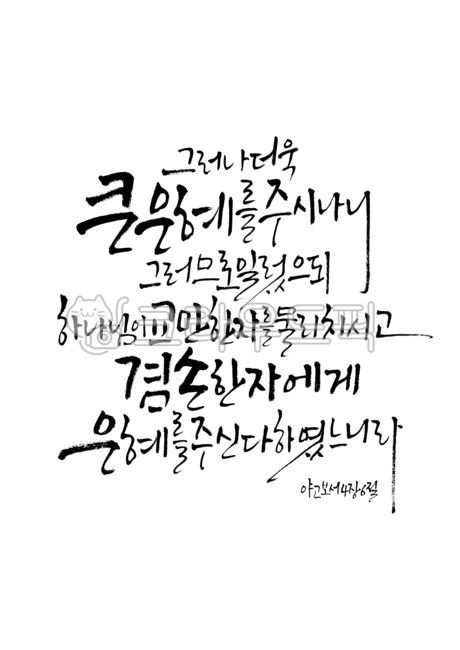 그러나 더욱
큰 은혜를 주시나니
그러므로 일렀으되
하나님이 교만한 자를 물리치시고
겸손한 자에게
은혜를 주신다 하였느니라
야고보서 4장 6절
크라우드픽